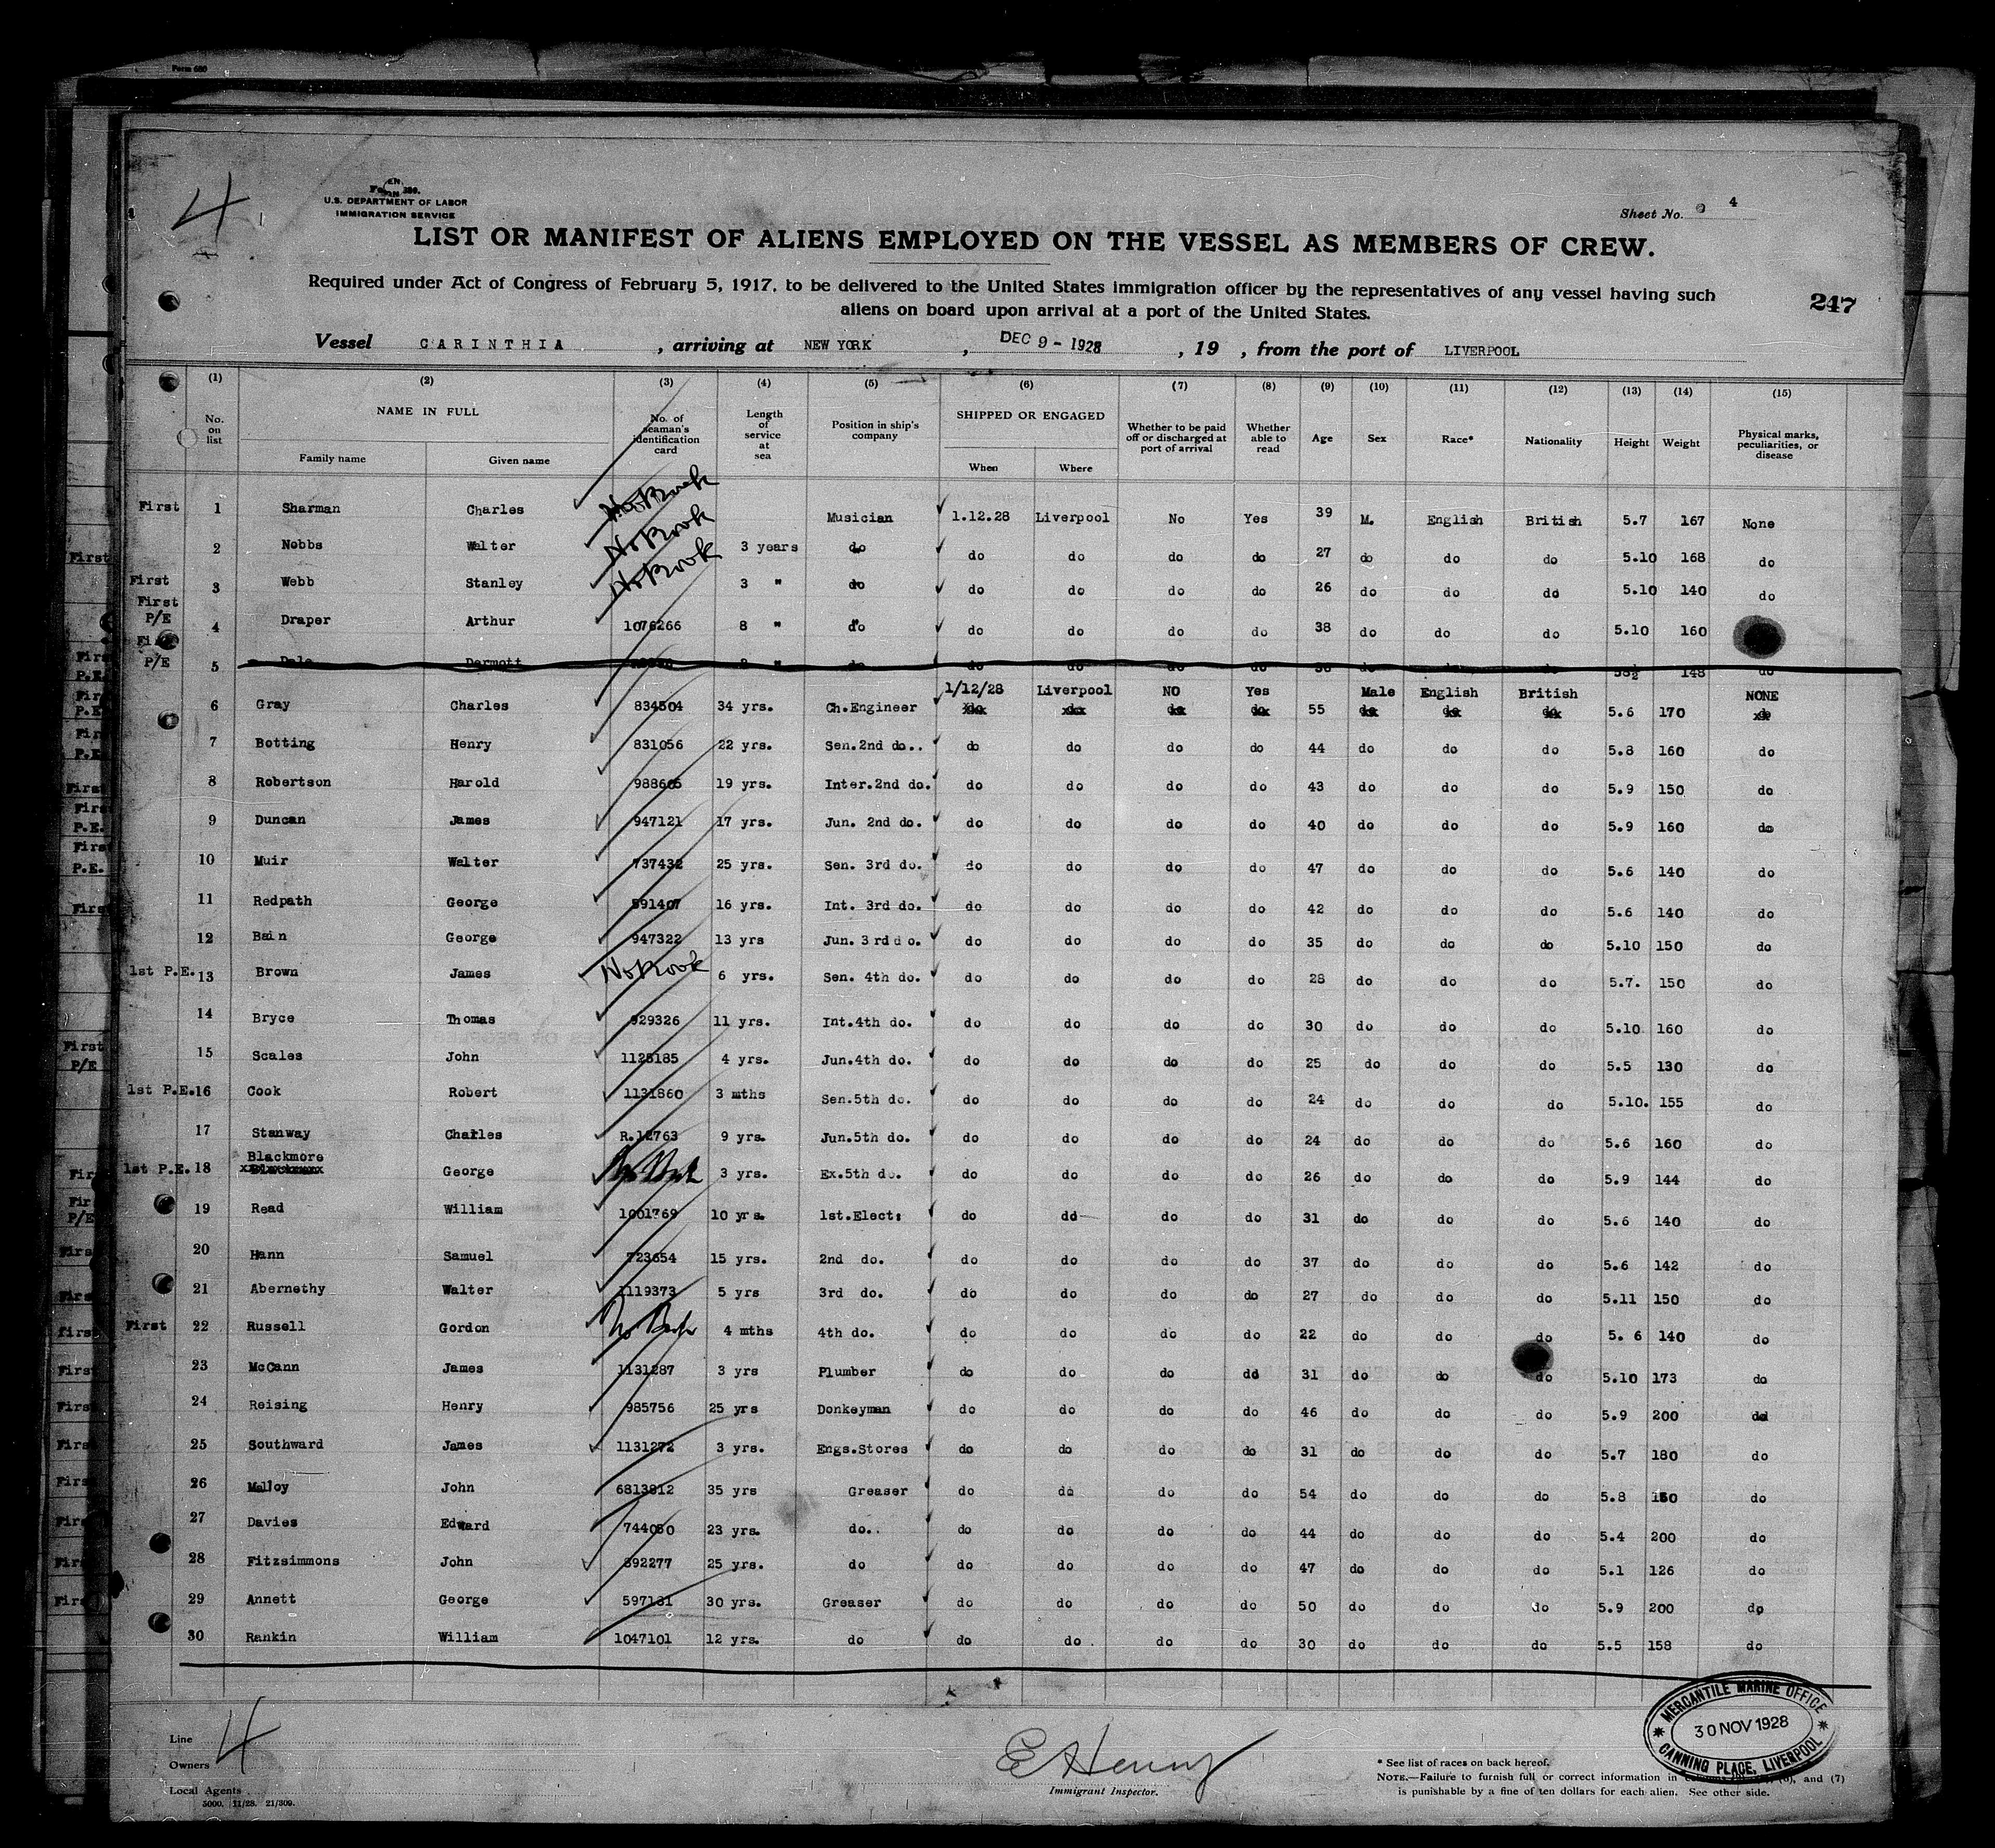 Form 680
4
U.S. DEPARTMENT OF LABOR
IMMIGRATION SERVICE
Sheet No. 4
LIST OR MANIFEST OF ALIENS EMPLOYED ON THE VESSEL AS MEMBERS OF CREW.
Required under Act of Congress of February 5, 1917, to be delivered to the United States immigration officer by the representatives of any vessel having such
aliens on board upon arrival at a port of the United States.
247
Vessel CARINTHIA , arriving at NEW YORK , DEC 9 - 1928 , 19 , from the port of LIVERPOOL
(1) (2) (3) (4) (5) (6) (7) (8) (9) (10) (11) (12) (13) (14) (15)
No. on list NAME IN FULL Family name Given name No. of seaman's identification card Length of service at sea Position in ship's company SHIPPED OR ENGAGED When Where Whether to be paid off or discharged at port of arrival Whether able to read Age Sex Race* Nationality Height Weight Physical marks, peculiarities, or disease
First 1 Sharman Charles No Book Musician 1.12.28 Liverpool No Yes 39 M. English British 5.7 167 None
2 Nobbs Walter No Book 3 years do do do do do 27 do do do 5.10 168 do
First 3 Webb Stanley No Book 3 " do do do do do 26 do do do 5.10 140 do
First P/E 4 Draper Arthur 1076266 8 " do do do do do 38 do do do 5.10 160
P/E 5 Dale Dermott do do do do do do do 148 do
1/12/28 Liverpool NO Yes Male English British NONE
6 Gray Charles 834504 34 yrs. Ch.Engineer do do do do 55 do do do 5.6 170 do
7 Botting Henry 831056 22 yrs. Sen.2nd do.. do do do do 44 do do do 5.8 160 do
8 Robertson Harold 988605 19 yrs. Inter.2nd do. do do do do 43 do do do 5.9 150 do
9 Duncan James 947121 17 yrs. Jun. 2nd do. do do do do 40 do do do 5.9 160 do
10 Muir Walter 737432 25 yrs. Sen. 3rd do. do do do do 47 do do do 5.6 140 do
11 Redpath George 591407 16 yrs. Int. 3rd do. do do do do 42 do do do 5.6 140 do
12 Bain George 947322 13 yrs Jun. 3rd do. do do do do 35 do do do 5.10 150 do
1st P.E. 13 Brown James No Book 6 yrs. Sen. 4th do. do do do do 28 do do do 5.7. 150 do
14 Bryce Thomas 929326 11 yrs. Int.4th do. do do do do 30 do do do 5.10 160 do
15 Scales John 1128185 4 yrs. Jun.4th do. do do do do 25 do do do 5.5 130 do
1st P.E. 16 Cook Robert 1131860 3 mths Sen.5th do. do do do do 24 do do do 5.10. 155 do
17 Stanway Charles R.12763 9 yrs. Jun.5th do. do do do do 24 do do do 5.6 160 do
1st P.E. 18 Blackmore George No Book 3 yrs. Ex.5th do. do do do do 26 do do do 5.9 144 do
19 Read William 1001769 10 yrs. 1st.Elect: do dd do do 31 do do do 5.6 140 do
20 Hann Samuel 723654 15 yrs. 2nd do. do do do do 37 do do do 5.6 142 do
21 Abernethy Walter 1119373 5 yrs 3rd do. do do do do 27 do do do 5.11 150 do
First 22 Russell Gordon No Book 4 mths 4th do. do do do do 22 do do do 5. 6 140 do
23 McCann James 1131287 3 yrs Plumber do do do dd 31 do do do 5.10 173 do
24 Reising Henry 985756 25 yrs Donkeyman do do do do 46 do do do 5.9 200 dd
25 Southward James 1131272 3 yrs. Engs.Stores do do do do 31 do do do 5.7 180 do
26 Malloy John 6813812 35 yrs Greaser do do do do 54 do do do 5.8 do
27 Davies Edward 744050 23 yrs. do.. do do do do 44 do do do 5.4 200 do
28 Fitzsimmons John 892277 25 yrs. do do do do do 47 do do do 5.1 126 do
29 Annett George 597131 30 yrs. Greaser do do do do 50 do do do 5.9 200 do
30 Rankin William 1047101 12 yrs. do do do do do 30 do do do 5.5 158 do
MERCANTILE MARINE OFFICE
30 NOV 1928
CANNING PLACE, LIVERPOOL
Line
4
Owners
Local Agents
5000. 11/28. 21/309.
E Henry
Immigrant Inspector.
* See list of races on back hereof.
NOTE.—Failure to furnish full or correct information in (6), and (7)
is punishable by a fine of ten dollars for each alien. See other side.